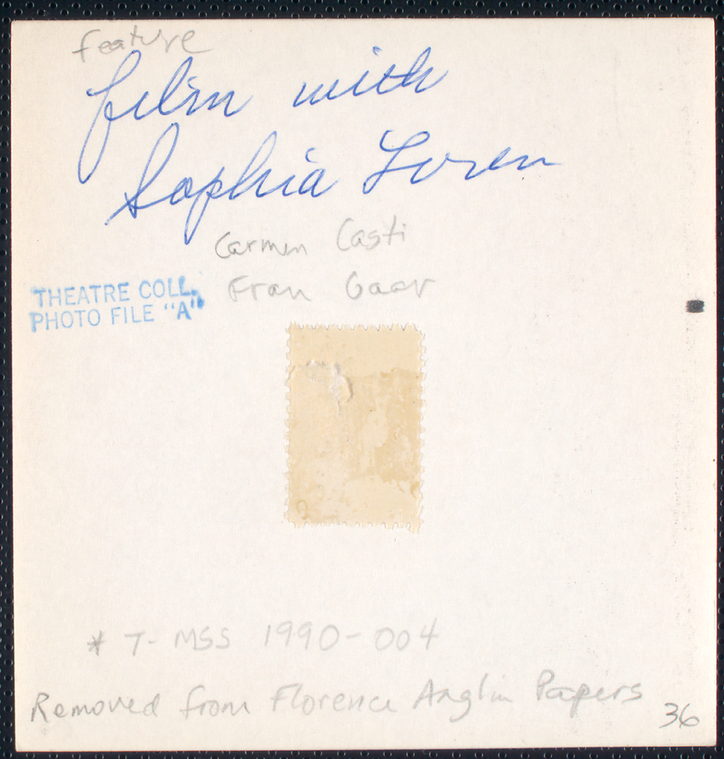 feature
film with
Sophia Loren
Carmen Casti
THEATRE COLL.
PHOTO FILE "A"
Fran Gaar
* T-MSS 1990-004
Removed from Florence Anglin Papers
36